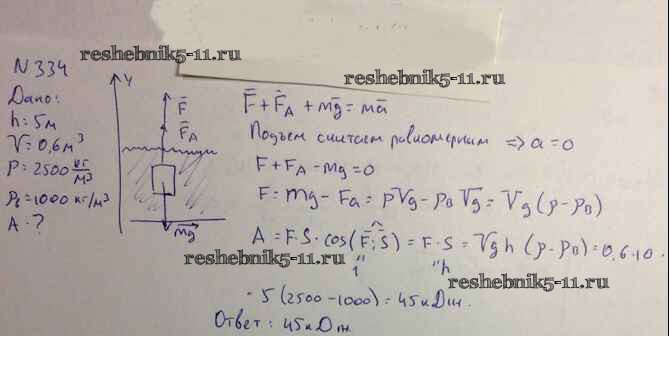 N 334
reshebnik5-11.ru
reshebnik5-11.ru
Дано:
h = 5 м
V = 0,6 м³
ρ = 2500 кг/м³
ρв = 1000 кг/м³
A - ?
Y
F̄
F̄A
mḡ
F̄ + F̄A + mḡ = mā
Подъем считаем равномерным => a = 0
F + FA - mg = 0
F = mg - Fa = ρVg - ρвVg = Vg(ρ - ρв)
A = F·S·cos(F̄;S̄) = F·S = Vgh(ρ - ρв) = 0,6·10·
1
h
reshebnik5-11.ru
reshebnik5-11.ru
·5(2500-1000) = 45кДж.
Ответ: 45кДж.